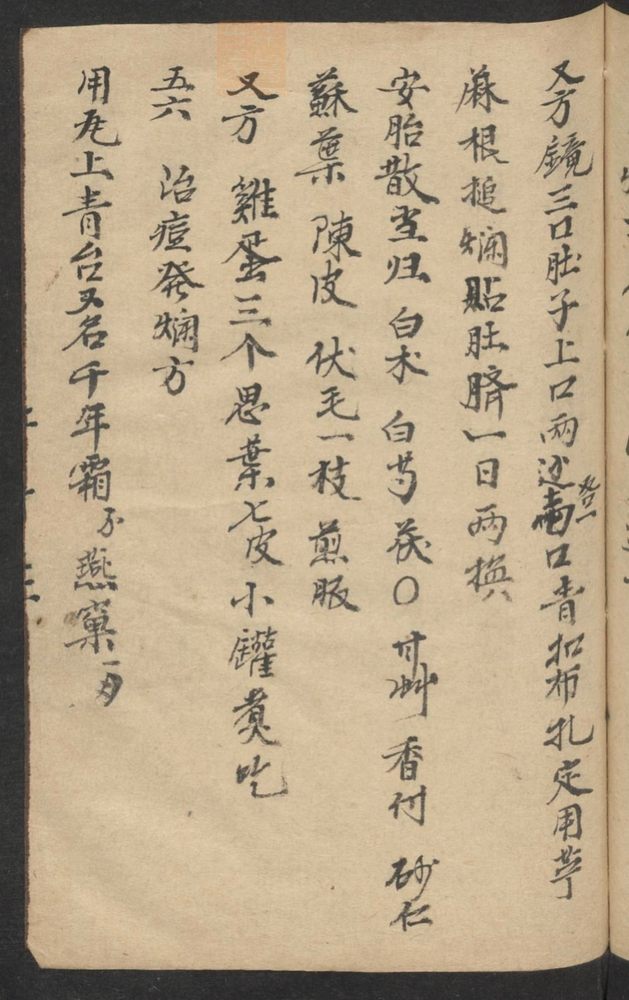 又方鏡三口肚子上口兩边口青扣布扎定用苧
麻根搥爛貼肚臍一日兩換
安胎散 当归 白术 白芍 茯〇 甘艸 香付 砂仁
蘇葉 陳皮 伏毛一枝 煎服
又方 雞蛋三个思葉七皮小罐煑吃
五六 治痘発爛方
用瓦上青台又名千年霜不燕窠